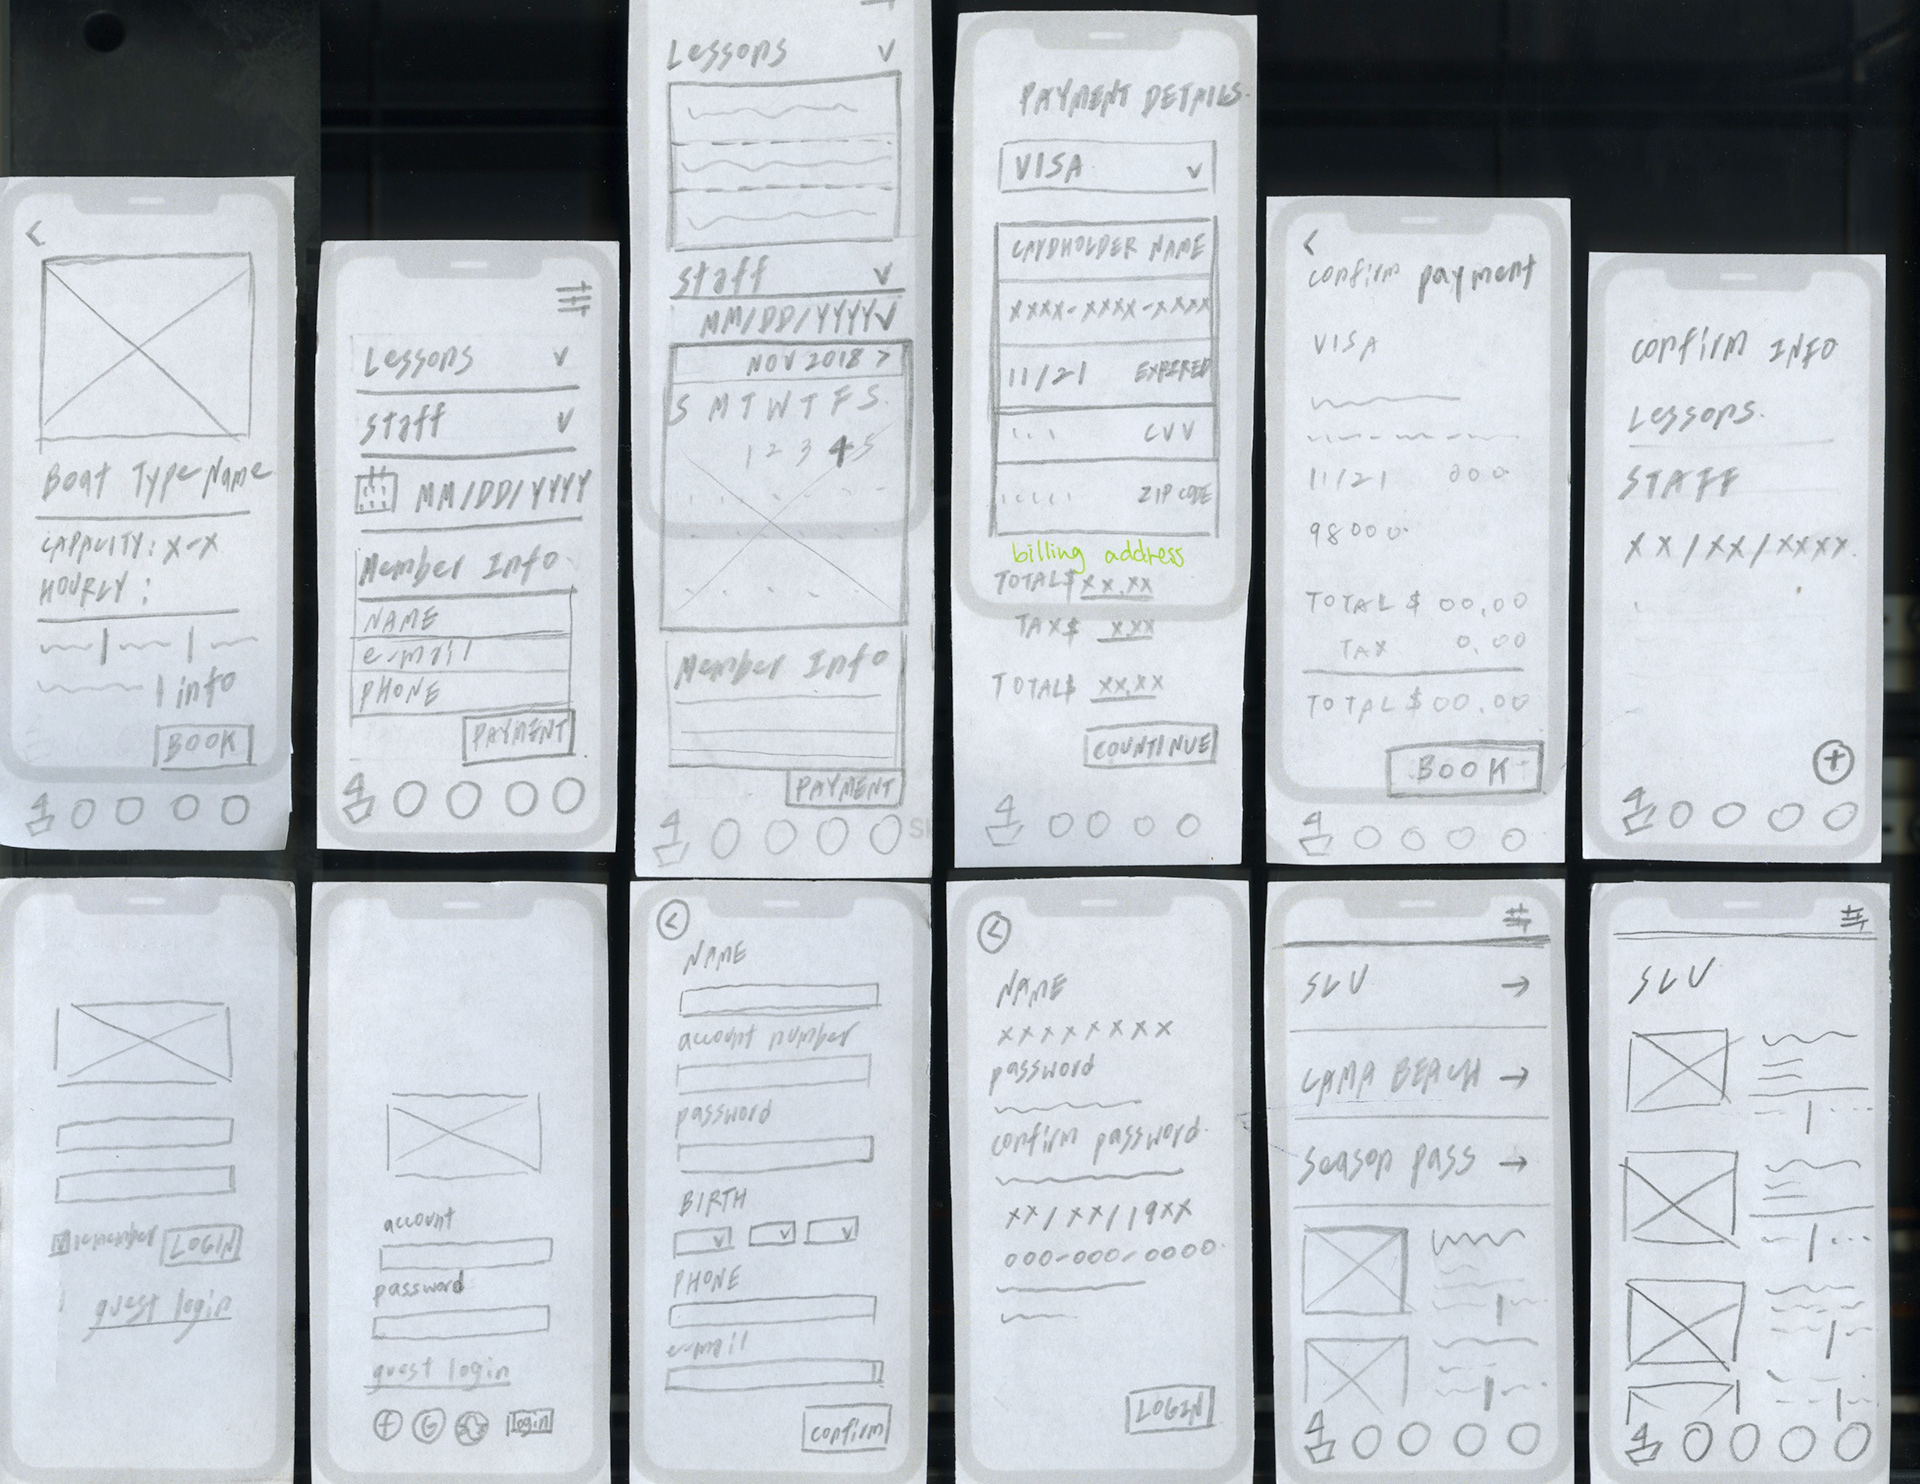 <
Boat Type Name
CAPACITY: X-X
HOURLY:
info
BOOK
Lessons
Staff
MM/DD/YYYY
Member Info
NAME
e-mail
PHONE
PAYMENT
Lessons
Staff
MM/DD/YYYY
NOV 2018 >
S M T W T F S
1 2 3 4 5
Member Info
PAYMENT
PAYMENT DETAILS
VISA
CARDHOLDER NAME
XXXX-XXXX-XXXX
11/21 EXPIRED
CVV
ZIP CODE
billing address
TOTAL $ XX.XX
TAX $ X.XX
TOTAL $ XX.XX
COUNTINUE
<
confirm payment
VISA
11/21 000
98000
TOTAL $ 00.00
TAX 0.00
TOTAL $ 00.00
BOOK
confirm INFO
Lessons.
STAFF
XX/XX/XXXX
+
remember LOGIN
guest login
account
password
guest login
f G login
<
NAME
account number
password
BIRTH
PHONE
e-mail
confirm
<
NAME
XXXXXXXX
password
confirm password
XX/XX/19XX
000-000-0000
LOGIN
SLV →
CAMA BEACH →
season pass →
SLV